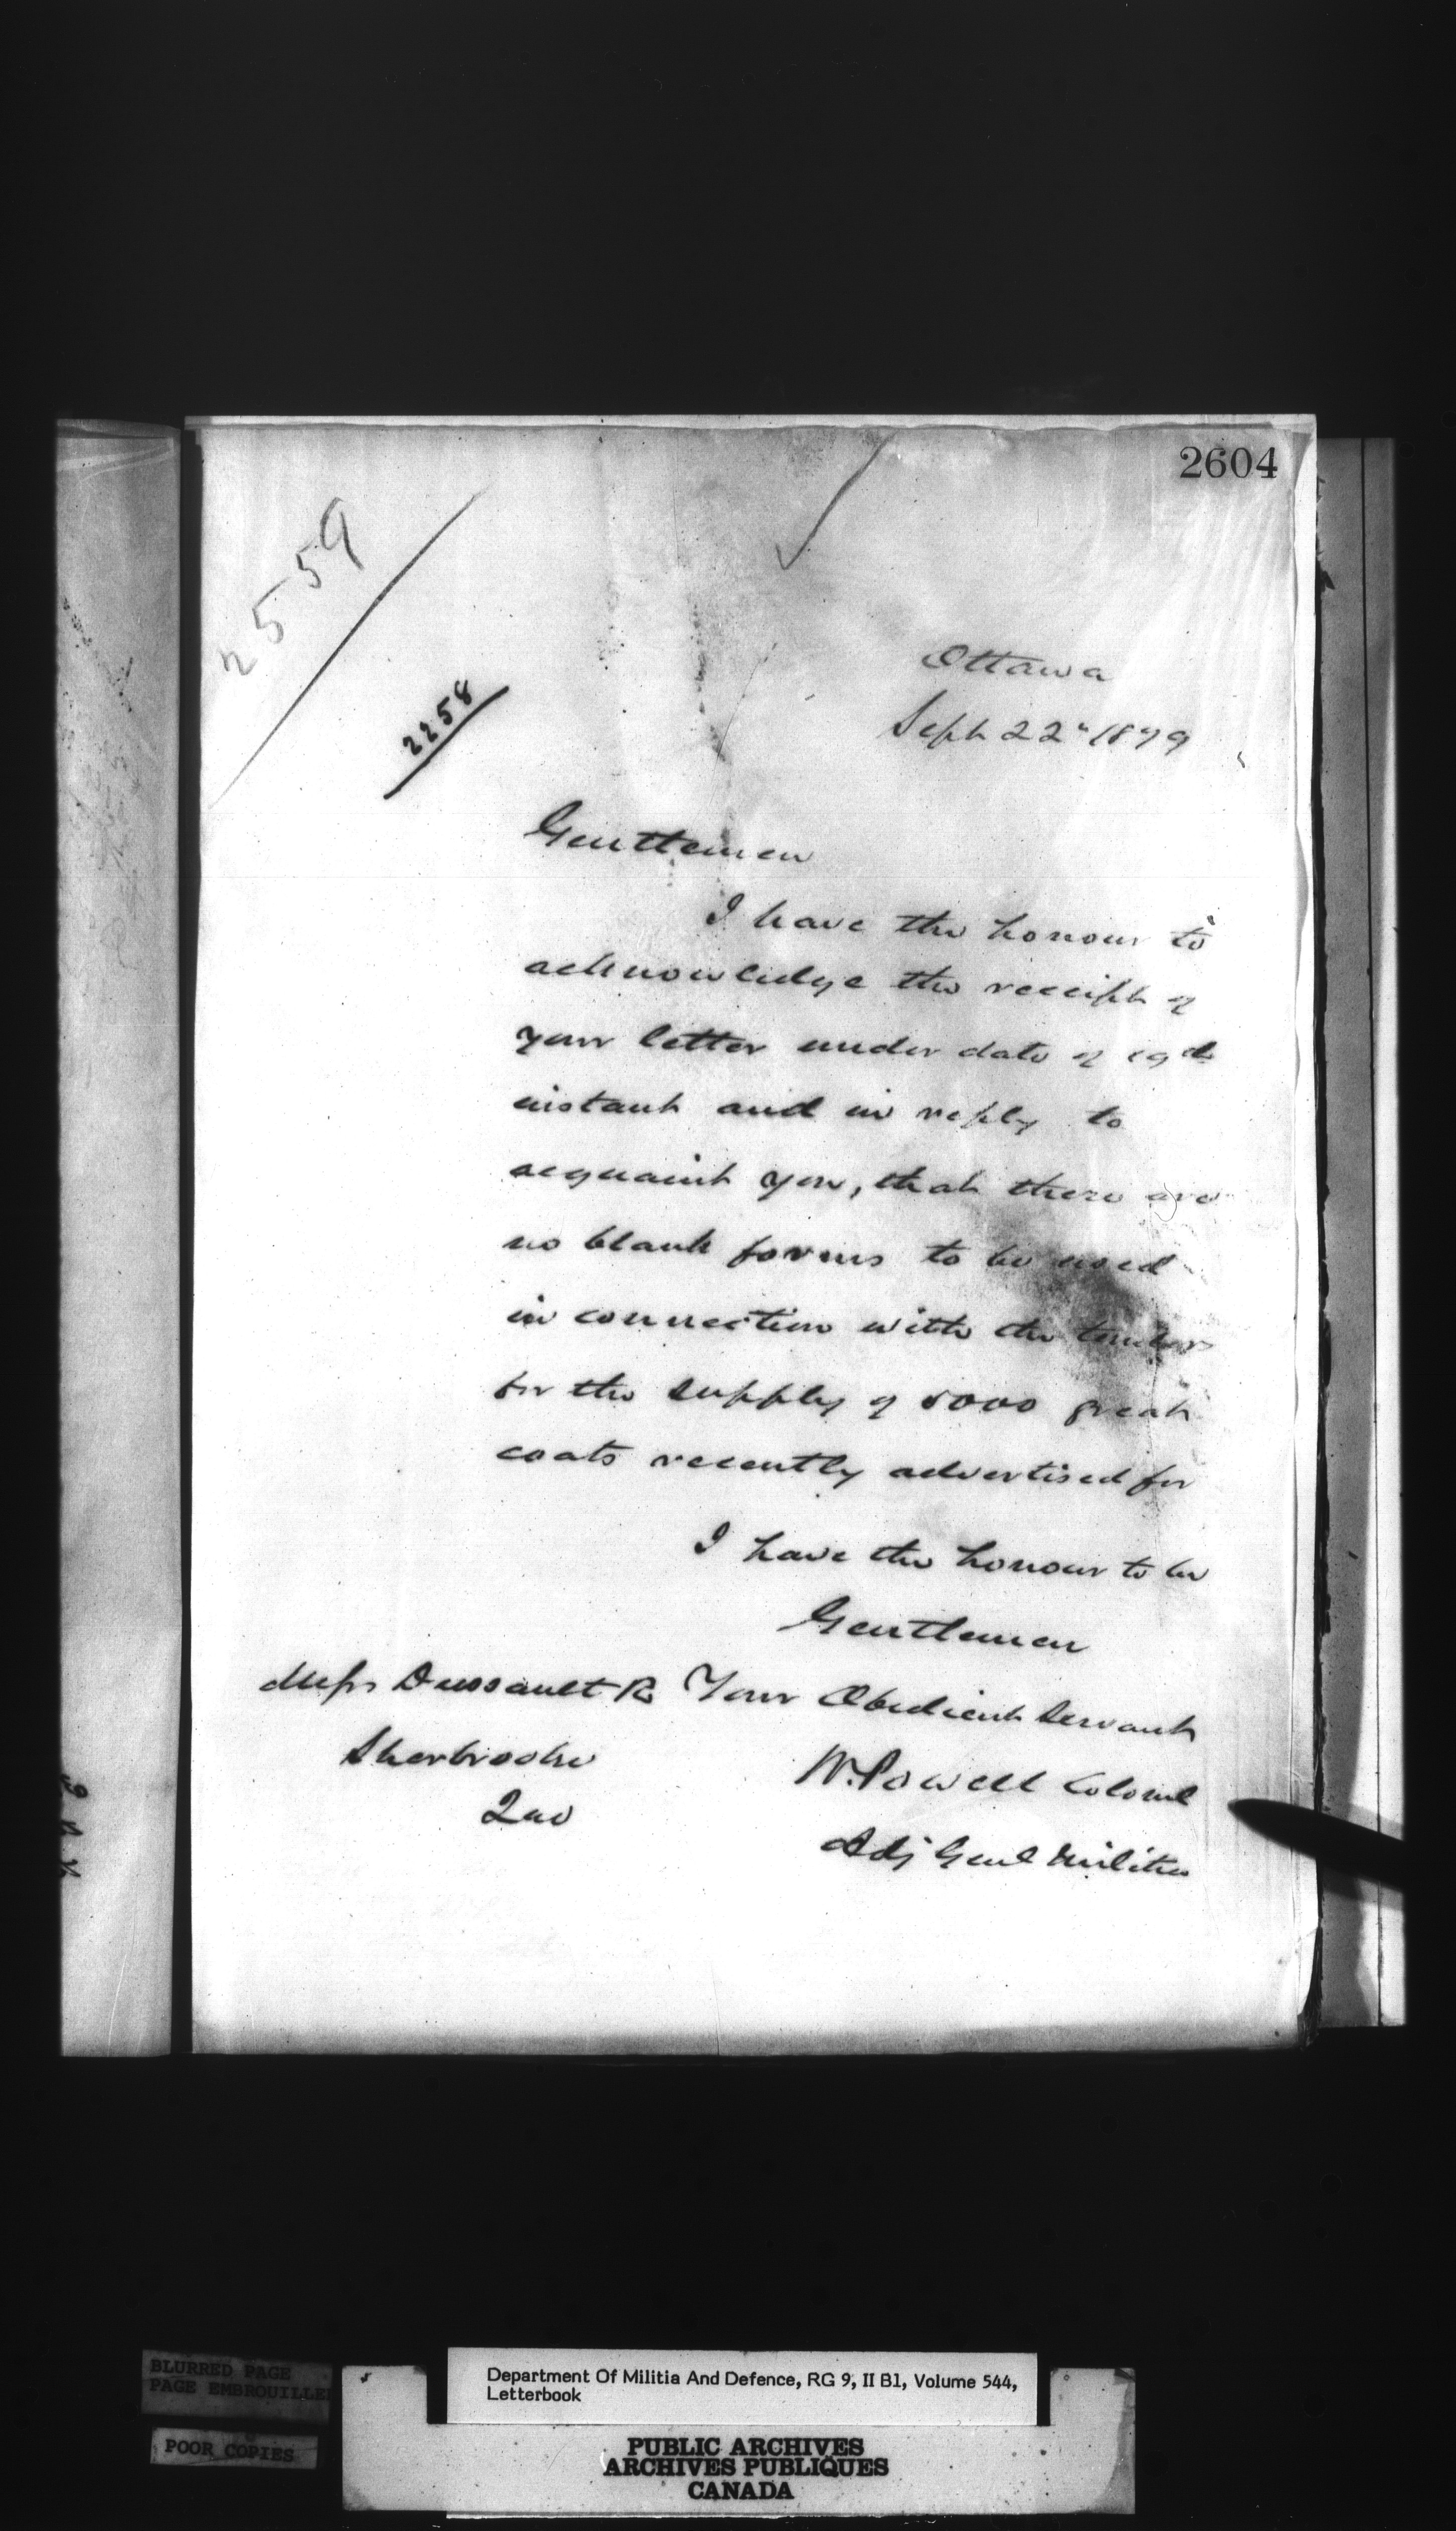 2604
2559
2258
Ottawa
Sept 22" 1879
Gentlemen
I have the honour to
acknowledge the receipt of
your letter under date of 19th
instant and in reply to
acquaint you, that there are
no blank forms to be used
in connection with the tenders
for the supply of 5000 great
coats recently advertised for
I have the honour to be
Gentlemen
Your Obedient Servant
W. Powell Colonel
Adj Genl Militia
Messrs Dussault &
Sherbrooke
Que
BLURRED PAGE
PAGE EMBROUILLE
POOR COPIES
Department Of Militia And Defence, RG 9, II B1, Volume 544,
Letterbook
PUBLIC ARCHIVES
ARCHIVES PUBLIQUES
CANADA